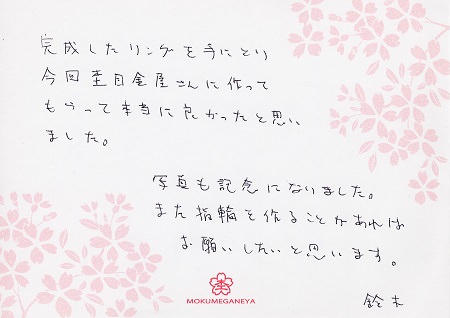 完成したリングを手にとり
今回杢目金屋さんに作って
もらって本当に良かったと思い
ました。
写真も記念になりました。
また指輪を作ることがあれば
お願いしたいと思います。
鈴木
MOKUMEGANEYA